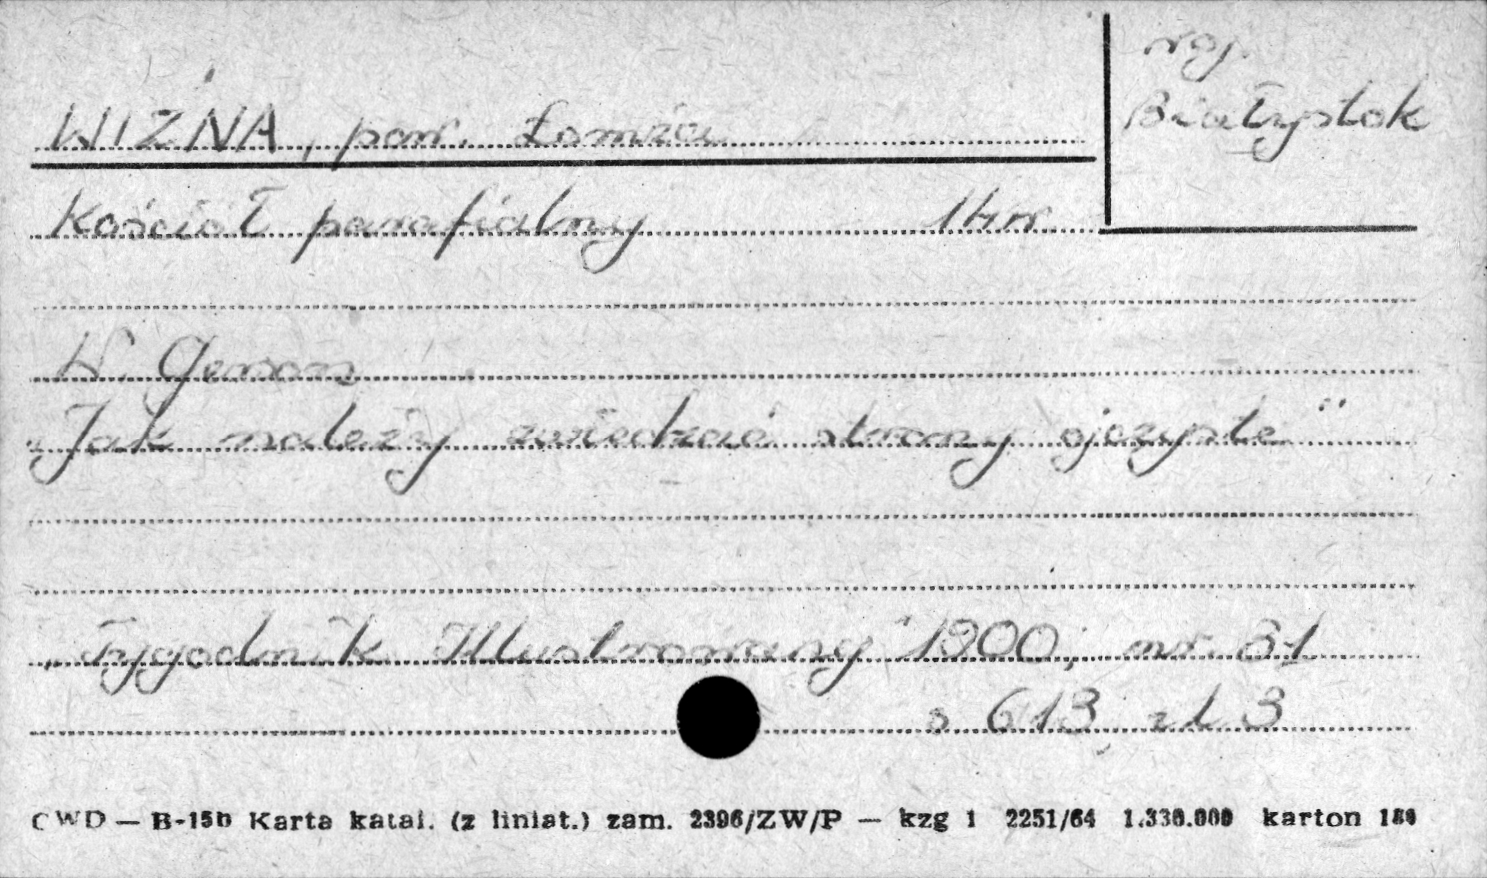 woj.
Białystok
WIZNA, pow. Łomża
Kościół parafialny 14 w.
W. Gerson
„Jak należy zwiedzać strony ojczyste"
„Tygodnik Illustrowany" 1900, nr. 31
s 613, il. 3
CWD — B-15b Karta katal. (z liniat.) zam. 2396/ZW/P — kzg 1 2251/64 1.330.000 karton